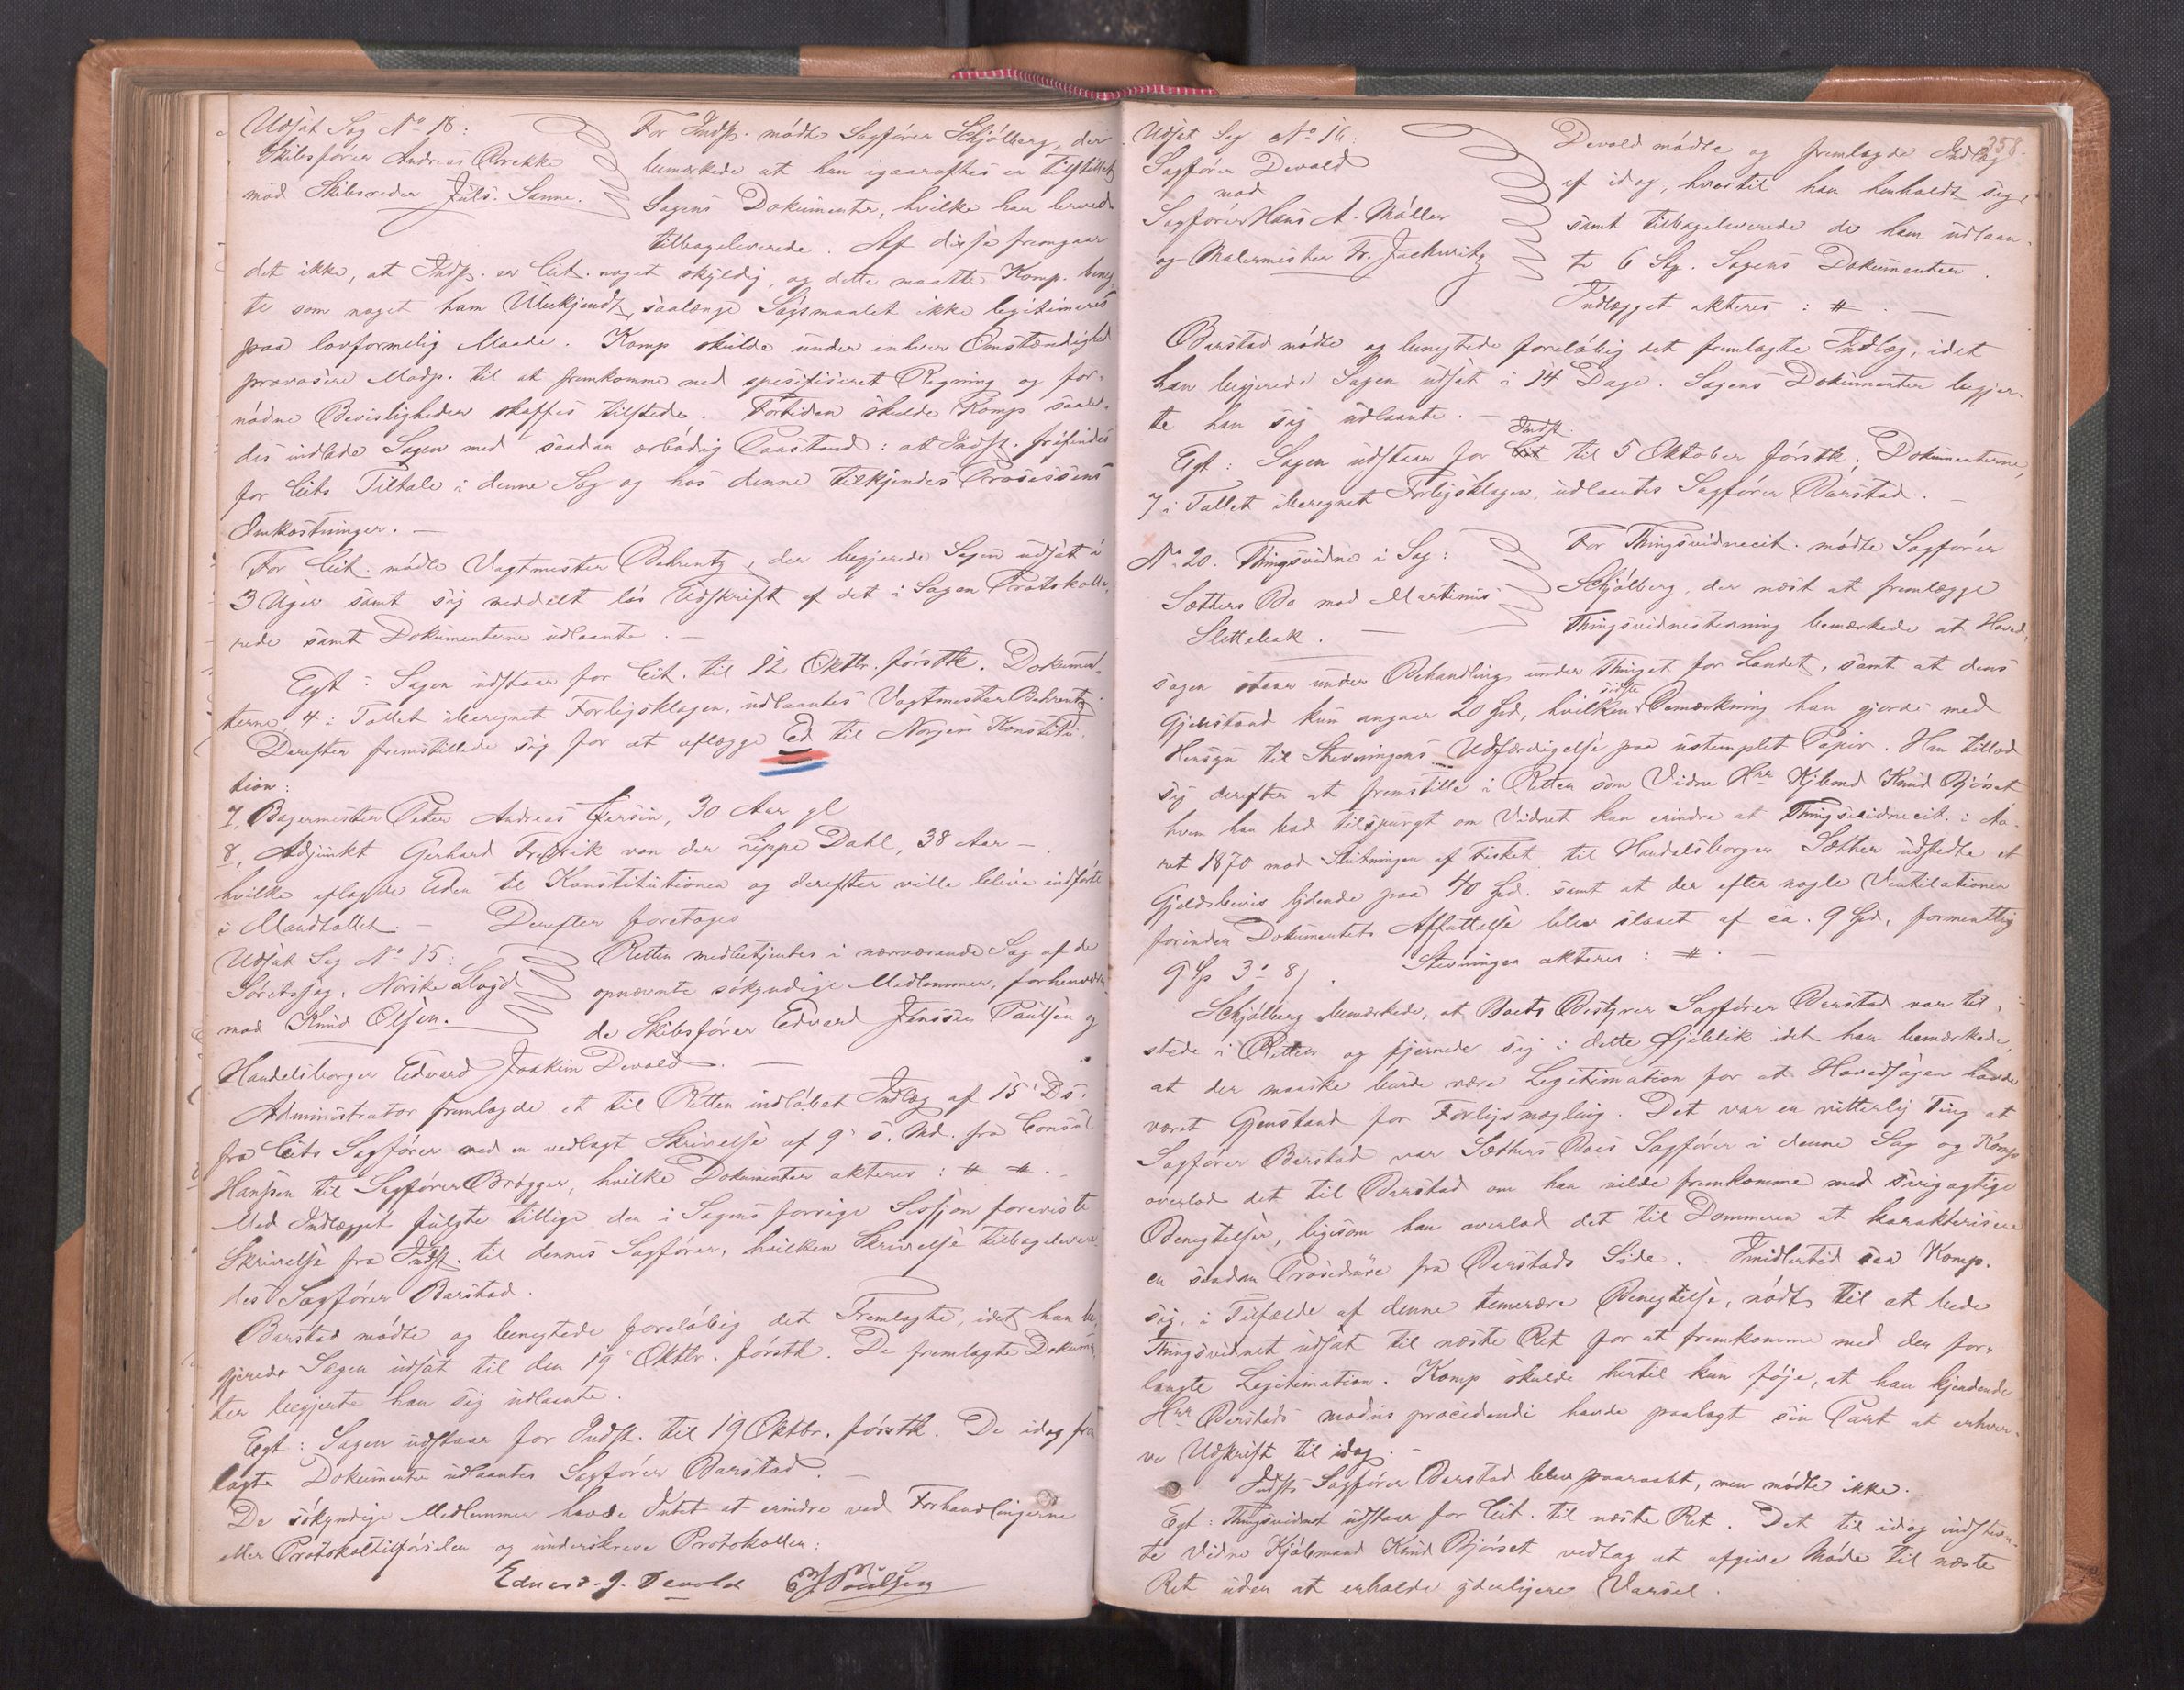 Udsat Sag No 18:
Skibsfører Andreas Brekke
mod Skibsreder Juls. Sanne.
For Indst. mødte Sagfører Schjølberg, der
bemærkede at han igaaraftes er tilstillet
Sagens Dokumenter, hvilke han herved
tilbageleverede. Af disse fremgaar
det ikke, at Indst. er Cit. noget skyldig, og dette maatte Komp. beneg-
te som noget ham Ubekjendt, saalænge Søgsmaalet ikke legitimeres
paa lovformelig Maade. Komp skulde under enhver Omstændighed
provosere Modp. til at fremkomme med spesifiseret Regning og for-
nødne Bevisligheder skaffes tilstede. Forliden skulde Komp saale-
des indlade Sagen med saadan ærbødig Paastand: at Indst. frifindes
for Cits Tiltale i denne Sag og hos denne tilkjendes Prosessens
Omkostninger. —
For Cit. mødte Vagtmester Behrentz, der begjerede Sagen udsat i
3 Uger samt sig meddelt løs Udskrift af det i Sagen Protokolle-
rede samt Dokumenterne udlaante. —
Egt: Sagen udstaar for Cit. til 12 Oktbr. førstk. Dokumen-
terne, 4 i Tallet iberegnet Forligsklagen, udlaantes Vagtmester Behrentz.
Derefter fremstillede sig for at aflægge Ed til Norges Konstitu-
tion:
7, Bagermester Peter Andreas Iversen, 30 Aar gl
8, Adjunkt Gerhard Fredrik von der Lippe Dahl, 38 Aar —
hvilke aflagde Eden til Konstitutionen og derefter ville blive indførte
i Mandtallet. — Derefter foretoges
Udsat Sag No 15:
Søretssag: Norske Lloyd
mod Knud Olsen.
Retten medbetjentes i nærværende Sag af de
opnævnte søkyndige Medlemmer, forhenværen-
de Skibsfører Edvard Jenssen Paulsen og
Handelsborger Edvard Joakim Devold. —
Administrator fremlagde et til Retten indløbet Indlæg af 15 Ds.
fra Cits Sagfører med en vedlagt Skrivelse af 9 s. Md. fra Consul
Hanssen til Sagfører Brøgger, hvilke Dokumenter akteres: # #. —
Med Indlægget fulgte tillige den i Sagens forrige Session foreviste
Skrivelse fra Indst. til dennes Sagfører, hvilken Skrivelse tilbagelevere-
des Sagfører Barstad.
Barstad mødte og benegtede foreløbig det Fremlagte, idet han be-
gjerede Sagen udsat til den 19 Oktbr. førstk. De fremlagte Dokumen-
ter begjerte han sig udlaante.
Egt: Sagen udstaar for Indst. til 19 Oktbr. førstk. De idag frem
lagte Dokumenter udlaantes Sagfører Barstad. —
De søkyndige Medlemmer havde Intet at erindre ved Forhandlingerne
eller Protokoltilførselen og underskreve Protokollen:
Edvard J. Devold E J Poulsen
358.
Udsat Sag No 16.
Sagfører Devold
mod
Sagfører Hans A. Møller
og Malermester Fr. Jackwitz
Devold mødte og fremlagde Indlæg
af idag, hvortil han henholdt sig,
samt tilbageleverede de ham udlaan-
te 6 St. Sagens Dokumenter.
Indlægget akteres: #. —
Barstad mødte og benegtede foreløbig det fremlagte Indlæg, idet
han begjerede Sagen udsat i 14 Dage. Sagens Dokumenter begjer-
te han sig udlaante. —
Egt: Sagen udstaar for Cit Indst. til 5 Oktober førstk; Dokumenterne,
7 i Tallet iberegnet Forligsklagen, udlaantes Sagfører Barstad. —
No 20. Thingsvidne i Sag:
Sætters Bo mod Martinus
Slettebak. —
For Thingsvidnecit. mødte Sagfører
Schjølberg, der næst at fremlægge
Thingsvidnestevning bemærkede at Hoved-
sagen staar under Behandling under Thinget for Landet, samt at dens
Gjenstand kun angaar 20 Spd, hvilken sidste Bemærkning han gjorde med
Hensyn til Stevningens Udfærdigelse paa ustemplet Papir. Han tillod
sig derefter at fremstille i Retten som Vidne Hrr Kjøbmd Knud Bjørset
hvem han bad tilspurgt om Vidnet kan erindre at Thingsvidnecit. i Aa-
ret 1870 mod Slutningen af Fisket til Handelsborger Sæther udstedte et
Gjeldsbevis lydende paa 40 Spd. samt at der efter nogle Ventilationer
forinden Dokumentets Affattelse blev slaaet af ca. 9 Spd, formentlig
9 Sp 3 o 8 s. Stevningen akteres: #. —
Schjølberg bemærkede, at Boets Bestyrer Sagfører Barstad var til-
stede i Retten og fjernede sig i dette Øjeblik idet han bemærkede,
at der maaske burde være Legitimation for at Hovedsagen havde
været Gjenstand for Forligsmægling. Det var en vitterlig Ting at
Sagfører Barstad var Sæthers Boes Sagfører i denne Sag og Komp
overlod det til Barstad om han vilde fremkomme med svigagtige
Benegtelser, ligesom han overlod det til Dommeren at karakterisere
en saadan Prosedure fra Barstads Side. Imidlertid saa Komp.
sig, i Tilfælde af denne temerære Benegtelse, nødt til at bede
Thingsvidnet udsat til næste Ret for at fremkomme med den for-
langte Legitimation. Komp skulde hertil kun føje, at han kjendende
Hrr Barstads modus procedendi havde paalagt sin Part at erhver-
ve Udskrift til idag. —
Indsts Sagfører Barstad blev paaraabt, men mødte ikke.
Egt: Thingsvidnet udstaar for Cit. til næste Ret. Det til idag indstevn-
te Vidne Kjøbmand Knud Bjørset vedtog at afgive Møde til næste
Ret uden at erholde yderligere Varsel.